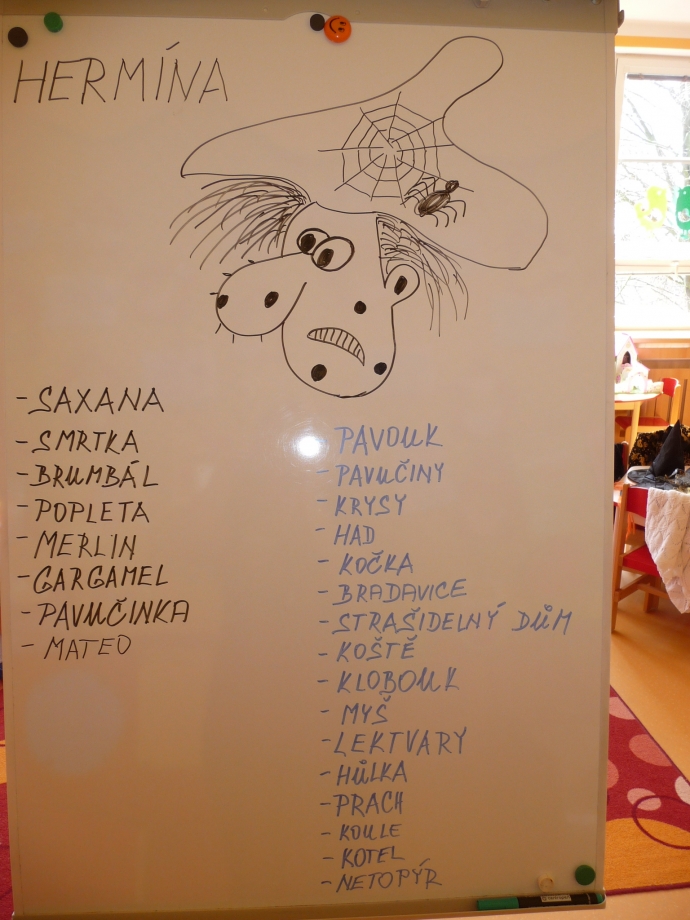 HERMÍNA
- SAXANA
- SMRTKA
- BRUMBÁL
- POPLETA
- MERLIN
- GARGAMEL
- PAVUČINKA
- MATEO
- PAVOUK
- PAVUČINY
- KRYSY
- HAD
- KOČKA
- BRADAVICE
- STRAŠIDELNÝ DŮM
- KOŠTĚ
- KLOBOUK
- MYŠ
- LEKTVARY
- HŮLKA
- PRACH
- KOULE
- KOTEL
- NETOPÝR